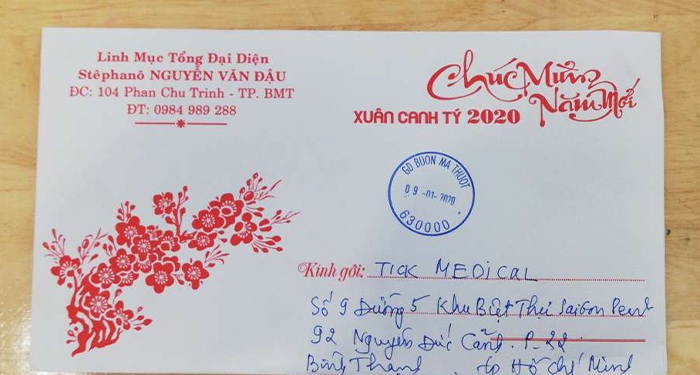 Linh Mục Tổng Đại Diện
Stêphanô NGUYỄN VĂN ĐẬU
ĐC: 104 Phan Chu Trinh - TP. BMT
ĐT: 0984 989 288
Chúc Mừng
Năm Mới
XUÂN CANH TÝ 2020
GD BUON MA THUOT
09-01-2020
630000
Kính gởi: TICK MEDICAL
Số 9 Đường 5 Khu Biệt Thự Saigon Pearl
92 Nguyễn Đức Cảnh. P-22
Bình Thạnh. tp Hồ Chí Minh